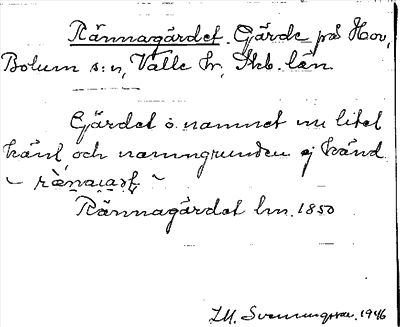 Rännagärdet. Gärde på Hov,
Bolum s:n, Valle hr, Skb. län.
Gärdet o. namnet nu litet
känt, och namngrunden ej känd
Rännagärdet lm. 1850
Svenningsson. 1946